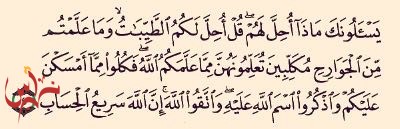 يَسْـَٔلُونَكَ مَاذَآ أُحِلَّ لَهُمْ ۖ قُلْ أُحِلَّ لَكُمُ ٱلطَّيِّبَـٰتُ ۙ وَمَا عَلَّمْتُم
مِّنَ ٱلْجَوَارِحِ مُكَلِّبِينَ تُعَلِّمُونَهُنَّ مِمَّا عَلَّمَكُمُ ٱللَّهُ ۖ فَكُلُوا۟ مِمَّآ أَمْسَكْنَ
عَلَيْكُمْ وَٱذْكُرُوا۟ ٱسْمَ ٱللَّهِ عَلَيْهِ ۖ وَٱتَّقُوا۟ ٱللَّهَ ۚ إِنَّ ٱللَّهَ سَرِيعُ ٱلْحِسَابِ